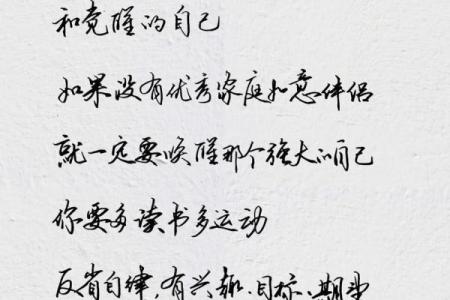 和竞醒的自己
如果没有优秀家庭如意伴侣
就一定要唤醒那个强大的自己
你要多读书多运动
反省自律,有兴趣、目标、期望